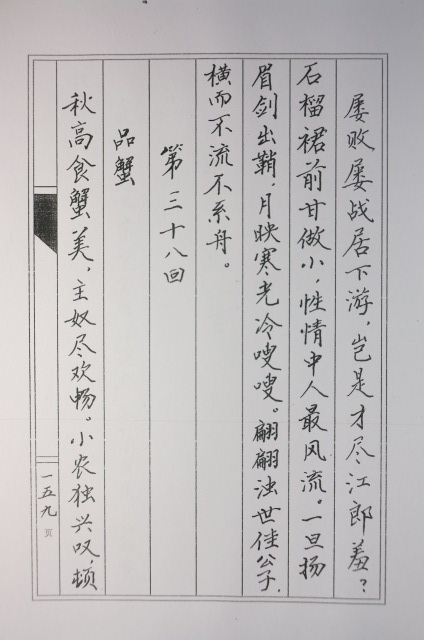 屡败屡战居下游，岂是才尽江郎羞？
石榴裙前甘做小，性情中人最风流。一旦扬
眉剑出鞘，月映寒光冷嗖嗖。翩翩浊世佳公子，
横而不流不系舟。
第三十八回
品蟹
秋高食蟹美，主奴尽欢畅。小农独兴叹，顿
一五九页